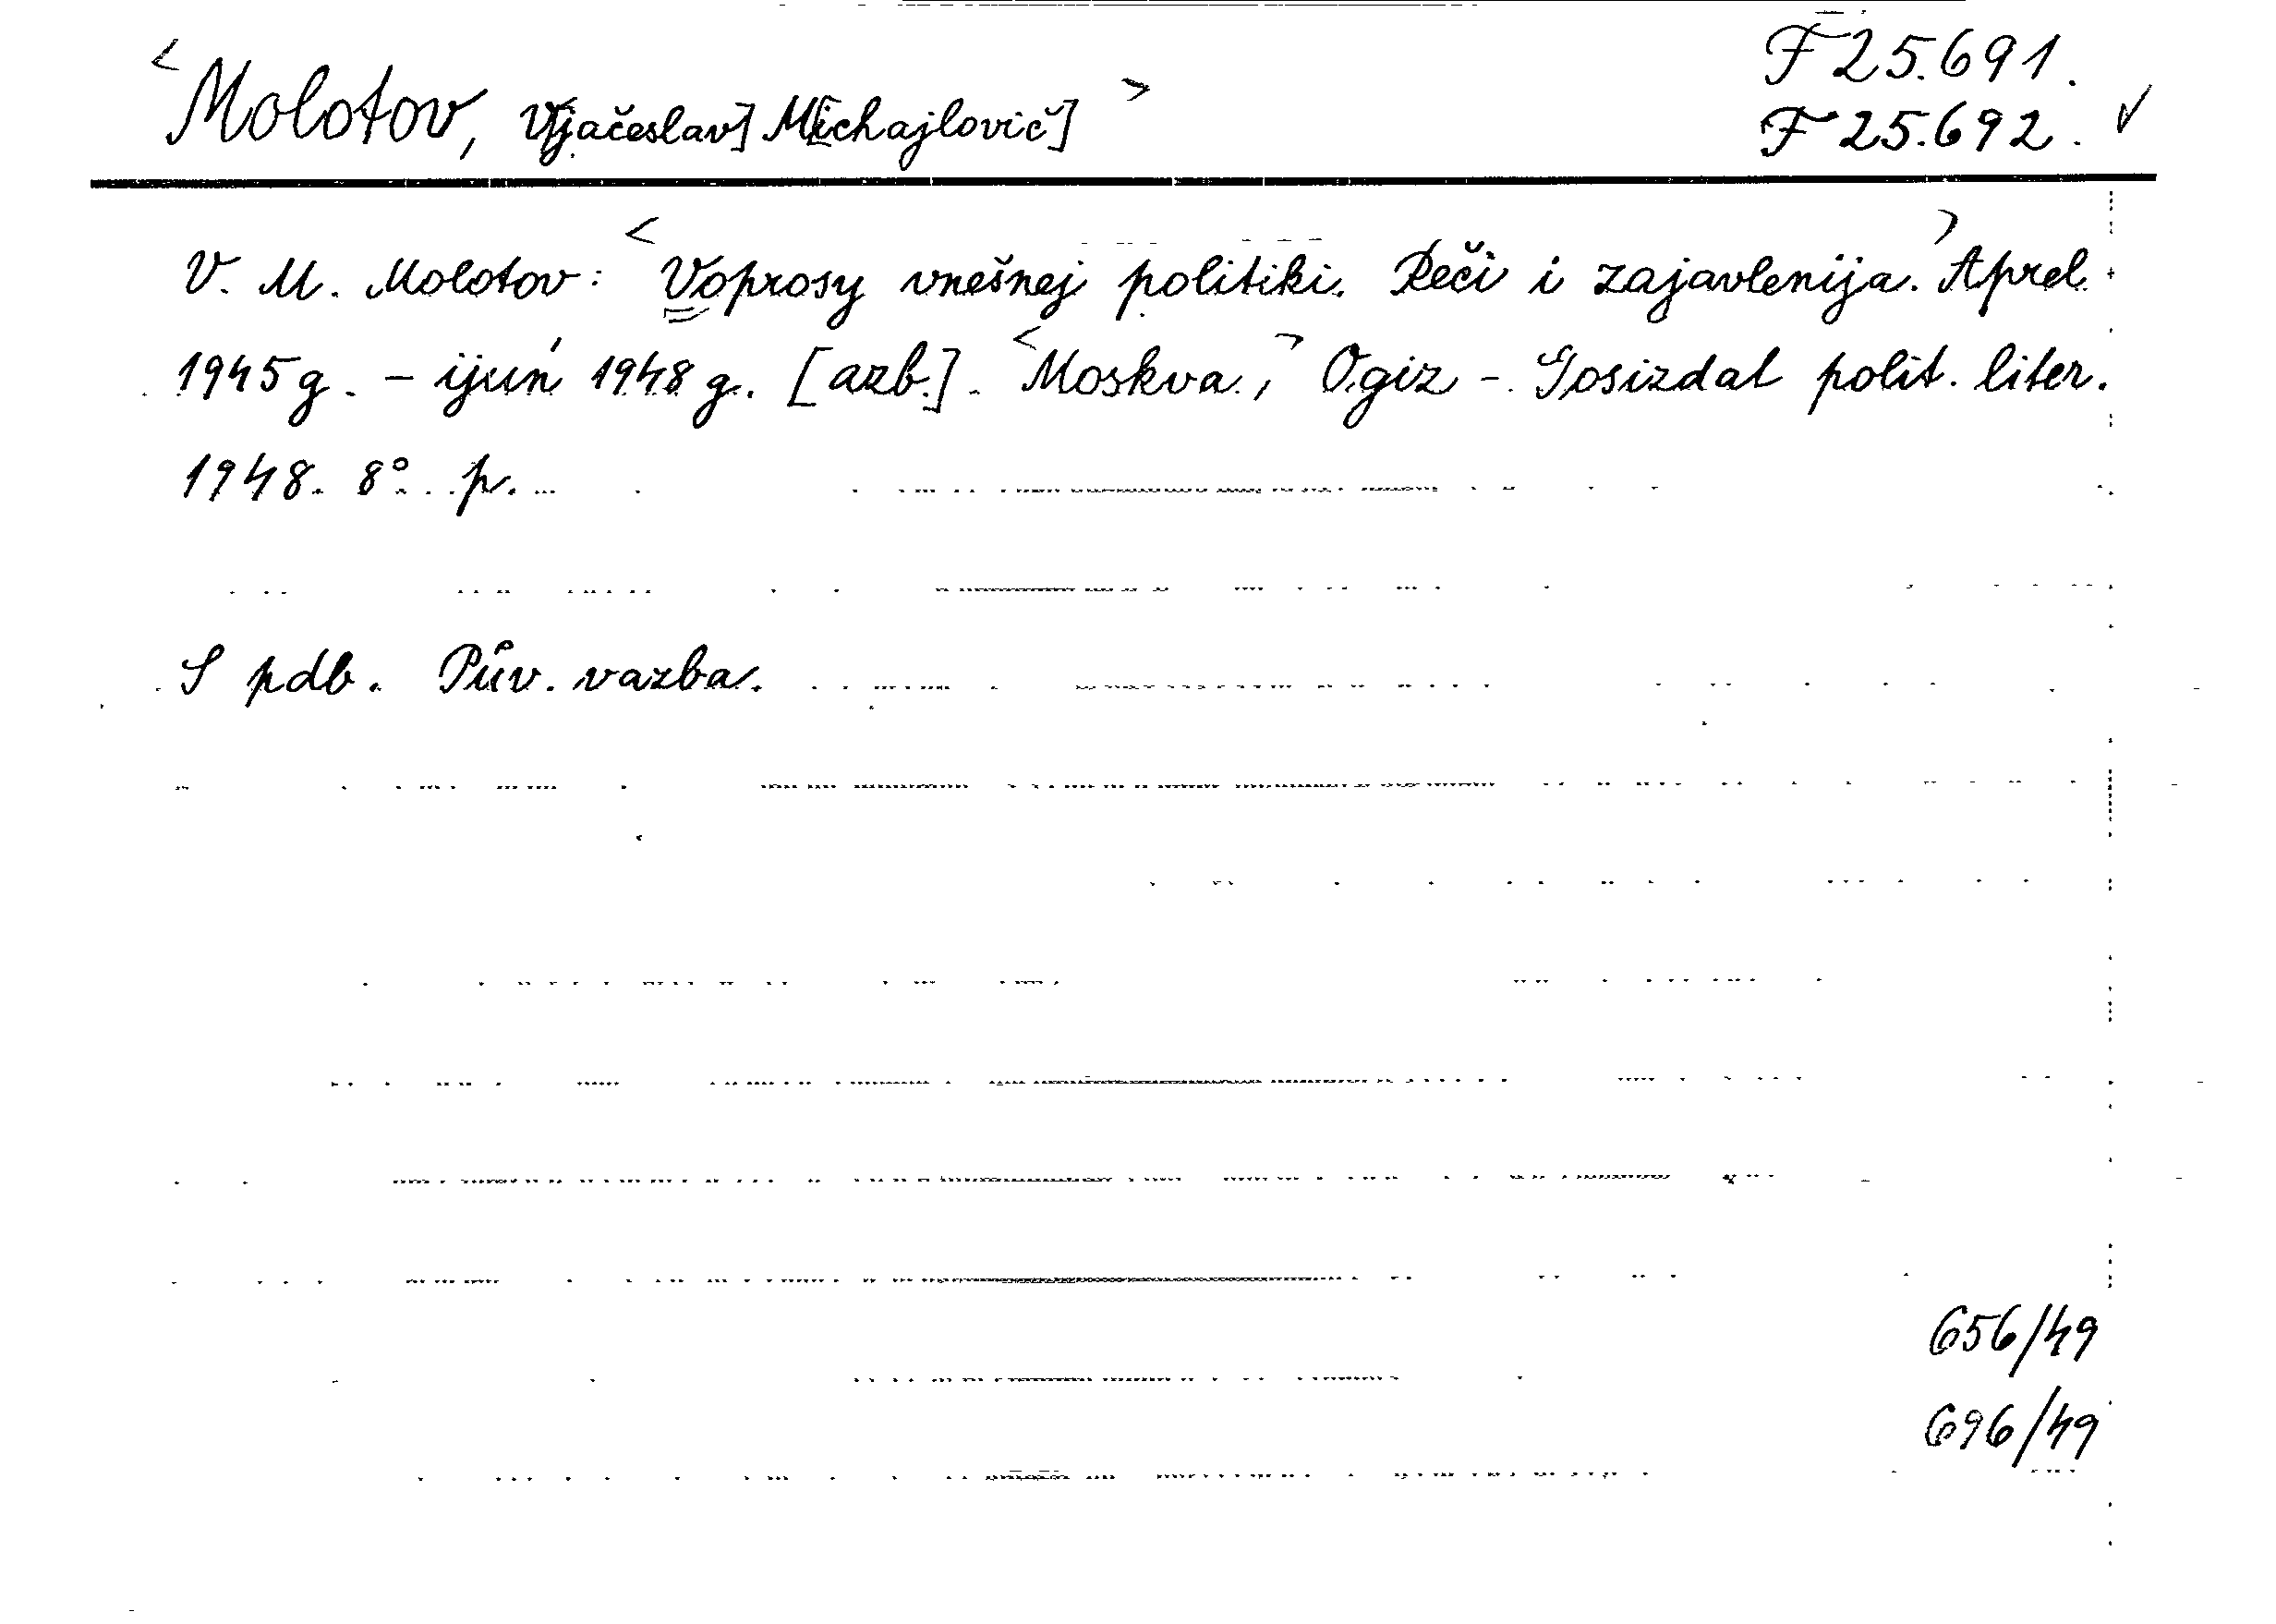 <Molotov, V[jačeslav] M[ichajlovič]>
F 25.691.
F 25.692. ✓
V. M. Molotov: <Voprosy vnešnej politiki. Reči i zajavlenija.> Aprel
1945 g. – ijuń 1948 g. [azb.]. <Moskva,> Ogiz - Gosizdat polit. liter.
1948. 8° p.
S pdb. Pův. vazba.
656/49
696/49